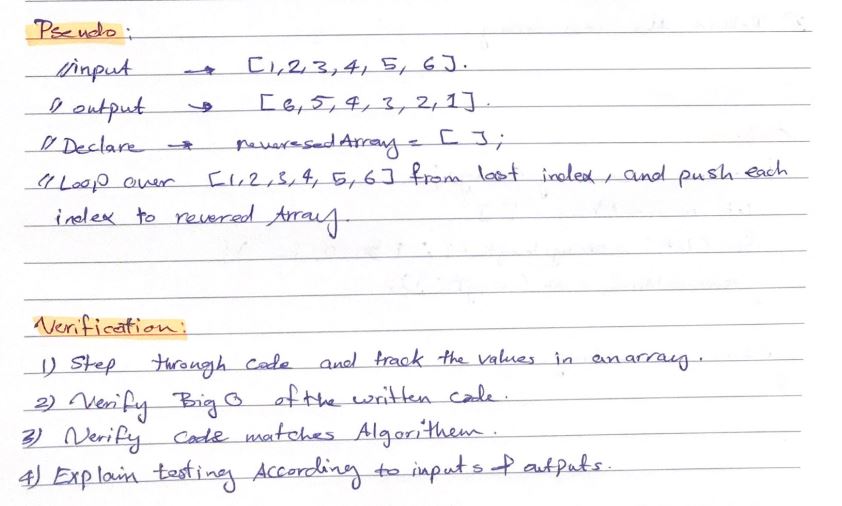 Pseudo:
//input → [1,2,3,4, 5, 6].
// output → [6,5,4,3,2,1].
// Declare → reveresedArray = [ ];
// Loop over [1,2,3,4,5,6] from last index, and push each
index to revered Array.
Verification:
1) Step through code and track the values in an array.
2) Verify Big O of the written code.
3) Verify code matches Algorithem.
4) Explain testing According to inputs & outputs.